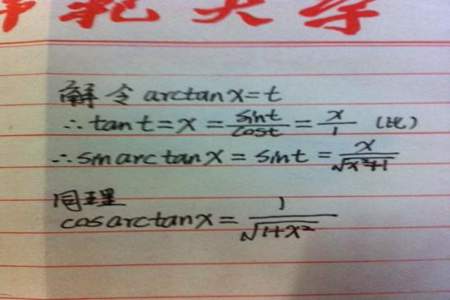 师范大学
解 令 arctanx=t
∴tant=x=sint/cost=x/1 (比)
∴sinarctanx=sint=x/√x²+1
同理
cosarctanx=1/√1+x²